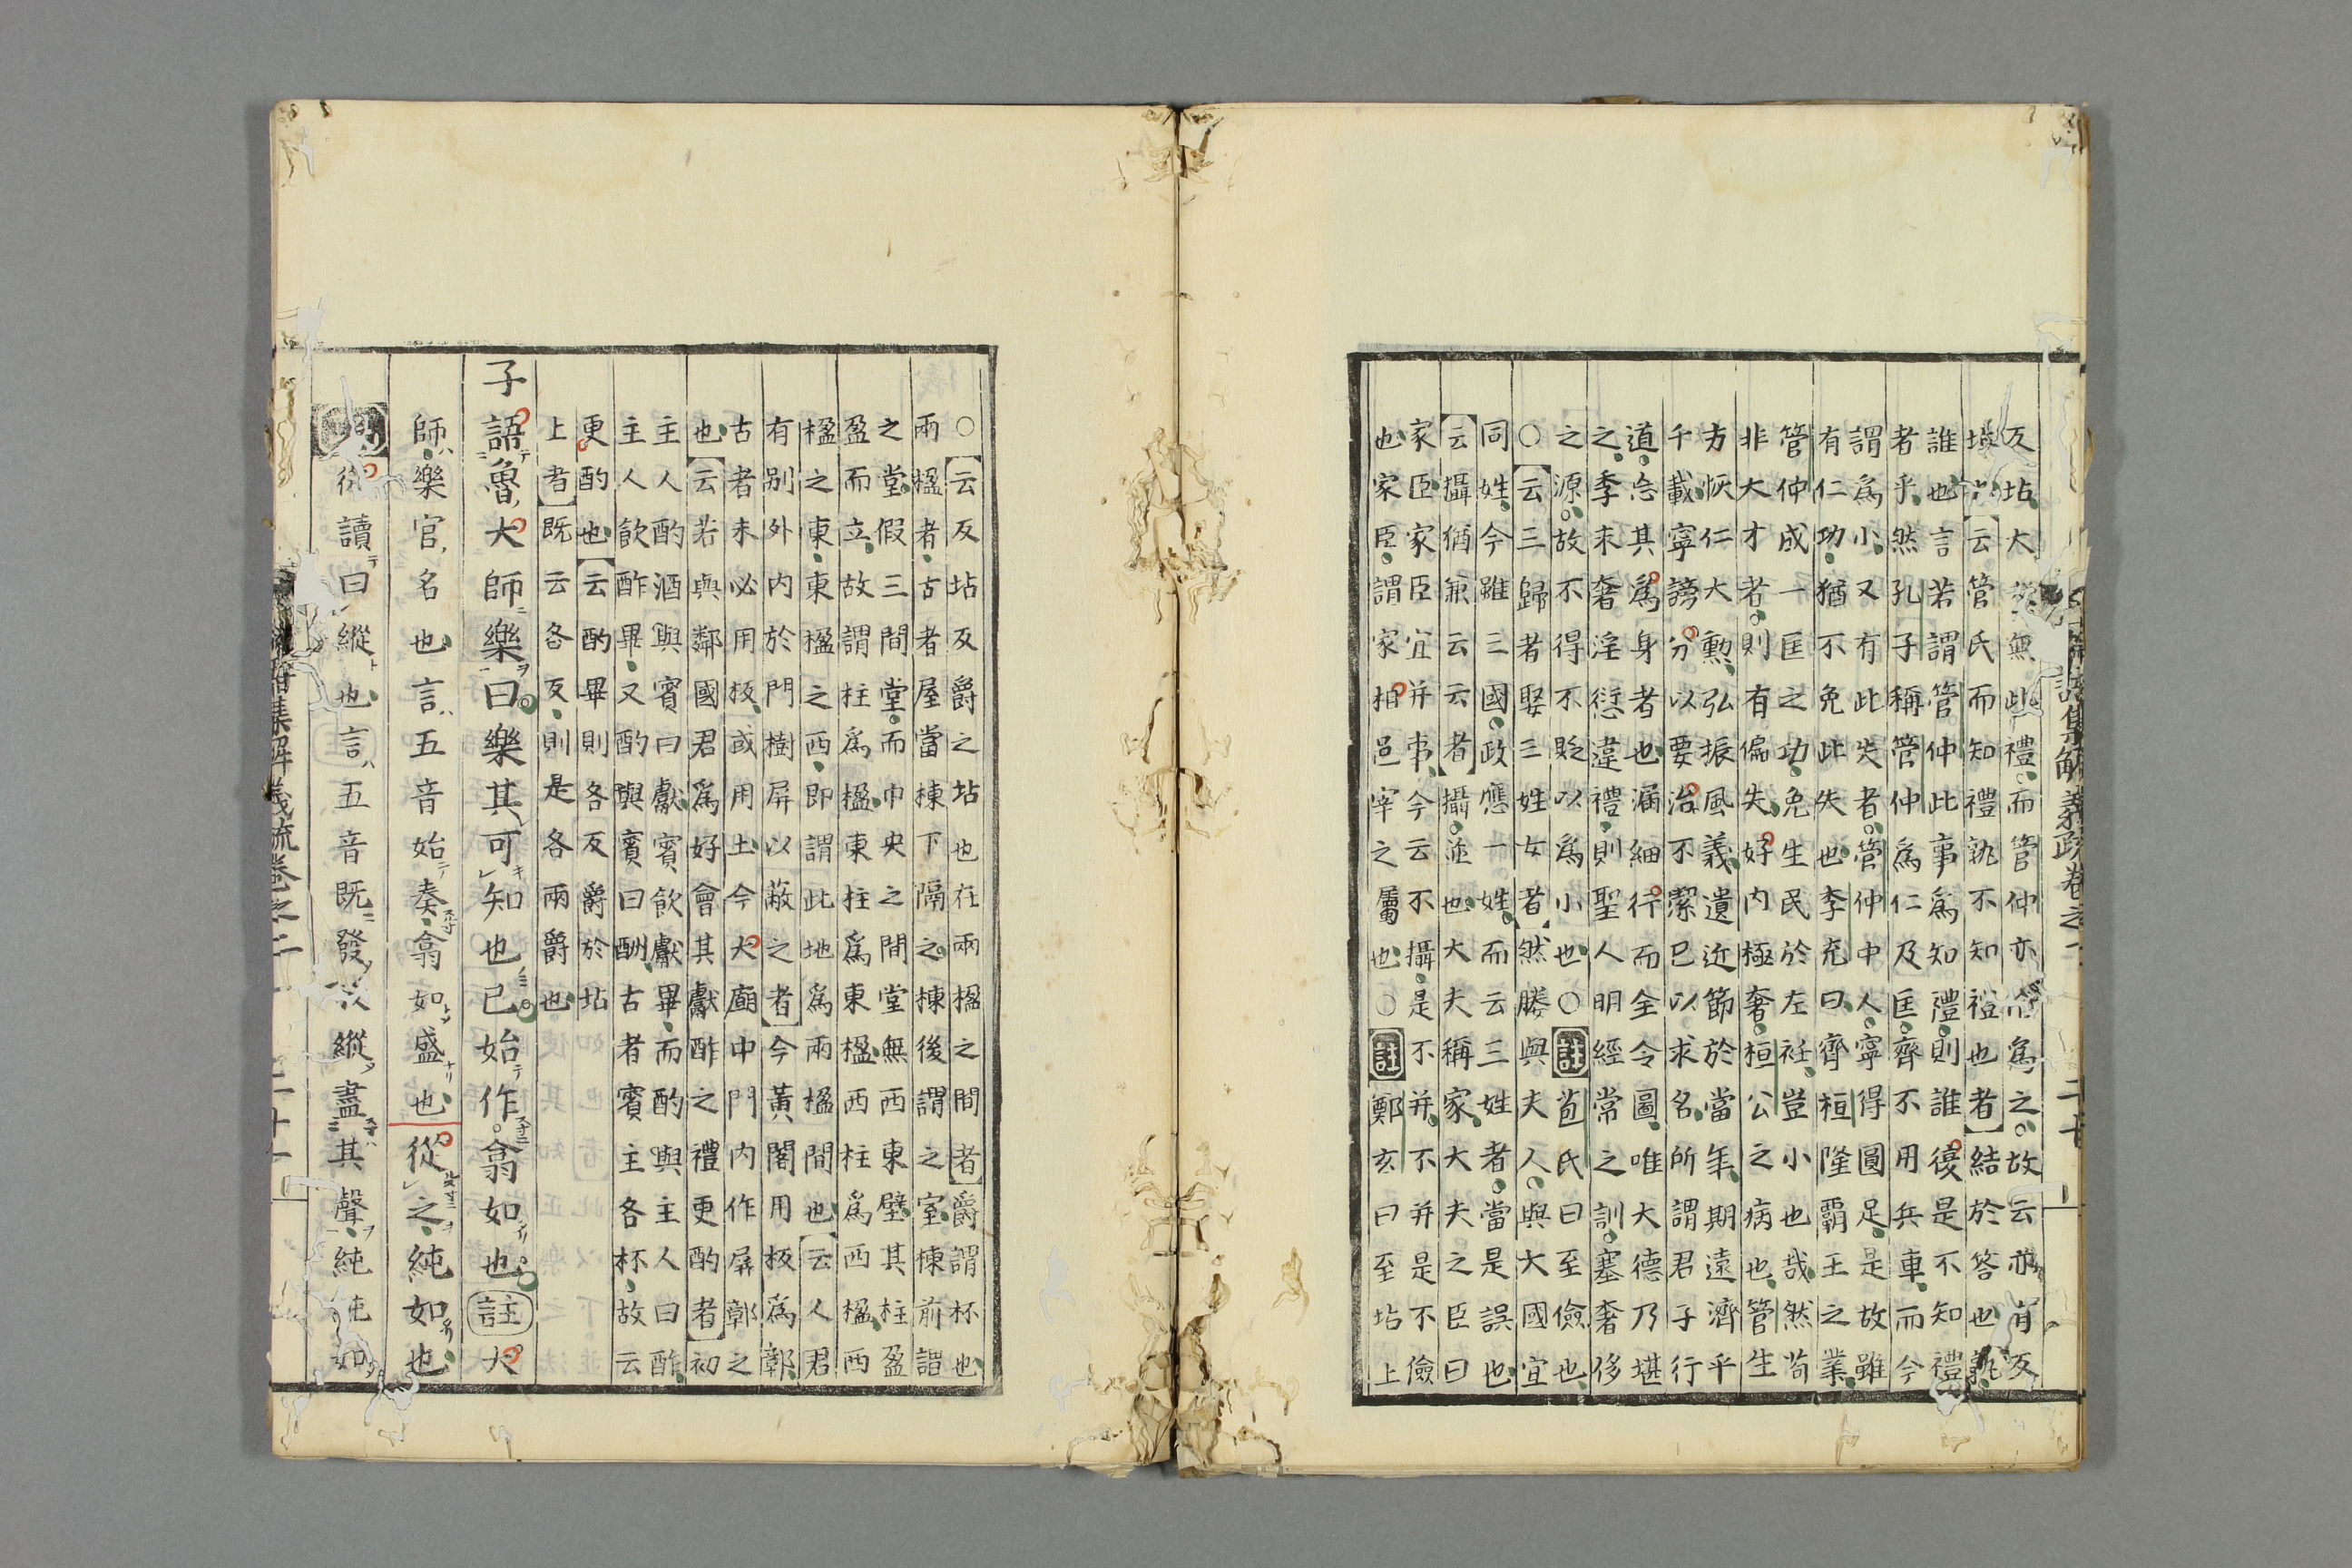 反坫大 無此禮而管仲亦 爲之故云 有反
坫 云管氏而知禮孰不知禮也者結於答也孰
誰也言若謂管仲此事爲知禮則誰復是不知禮
者乎然孔子稱管仲爲仁及匡齊不用兵車而今
謂爲小又有此失者管仲中人寧得圓足是故雖
有仁功猶不免此失也李充曰齊桓隆霸王之業
管仲成一匡之功免生民於左衽豈小也哉然苟
非大才者則有偏失好内極奢桓公之病也管生
方恢仁大勲弘振風義遺近節於當年期遠濟乎
千載寧謗分以要治不潔已以求名所謂君子行
道忘其爲身者也漏細行而全令圖唯大德乃堪
之季末奢淫愆違禮則聖人明經常之訓塞奢侈
之源故不得不貶以爲小也〇註苞氏曰至儉也
〇云三歸者娶三姓女者然媵與夫人與大國宜
同姓今雖三國政應一姓而云三姓者當是誤也
云攝猶兼云云者攝並也大夫稱家大夫之臣曰
家臣家臣宜并事今云不攝是不并不并是不儉
也家臣謂家相邑宰之屬也〇註鄭玄曰至坫上
〇云反坫反爵之坫也在兩楹之間者爵謂杯也
兩楹者古者屋當棟下隔之棟後謂之室棟前謂
之堂假三間堂而中央之間堂無西東壁其柱盈
盈而立故謂柱爲楹東柱爲東楹西柱爲西楹西
楹之東東楹之西即謂此地爲兩楹間也云人君
有别外内於門樹屏以蔽之者今黄閣用板爲鄣
古者未必用板或用土今大廟中門内作屏鄣之
也云若與鄰國君爲好會其獻酢之禮更酌者初
主人酌酒與賓曰獻賓飲獻畢而酌與主人曰酢
主人飲酢畢又酌與賓曰酬古者賓主各杯故云
更酌也云酌畢則各反爵於坫
上者既云各反則是各兩爵也
子語魯大師樂曰樂其可知也已始作翕如也註大
師樂官名也言五音始奏翕如盛也從之純如也
從讀曰縱也言五音既發 縱盡其聲純純如